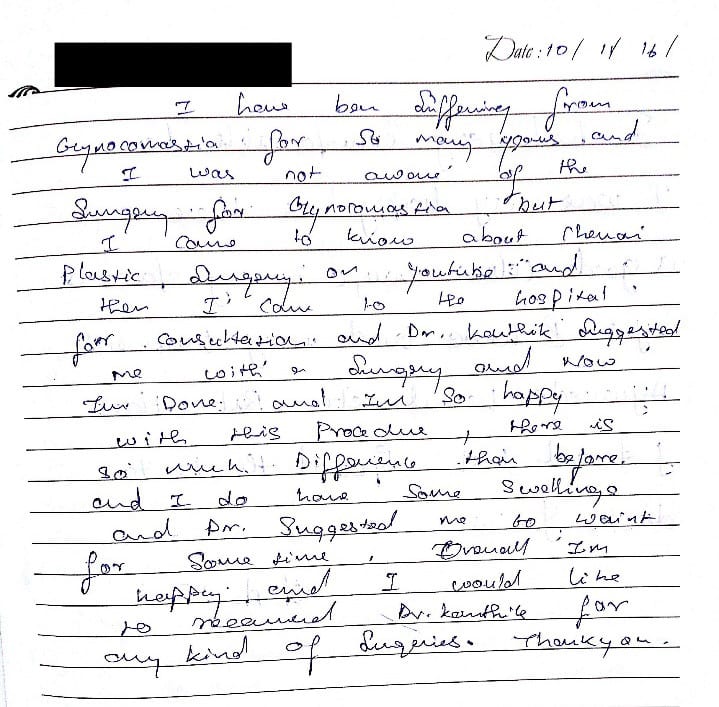 Date: 10/11/16/
I have ben suffering from
Gynocomastia for so many years and
I was not aware of the
Surgery for Gynocomastia but
I came to know about Chenai
Plastic Surgery on youtube and
then I came to the hospital
for consultation and Dr. Karthik Suggested
me with a Surgery and Now
Im Done and Im So happy
with this Procedue, there is
so much Difference than before.
and I do have Some Swellings
and Dr. Suggested me to
for Some time, Overall Im
happy and I would like
to Dr. Karthik for
any kind of Sugeries. Thankyou.